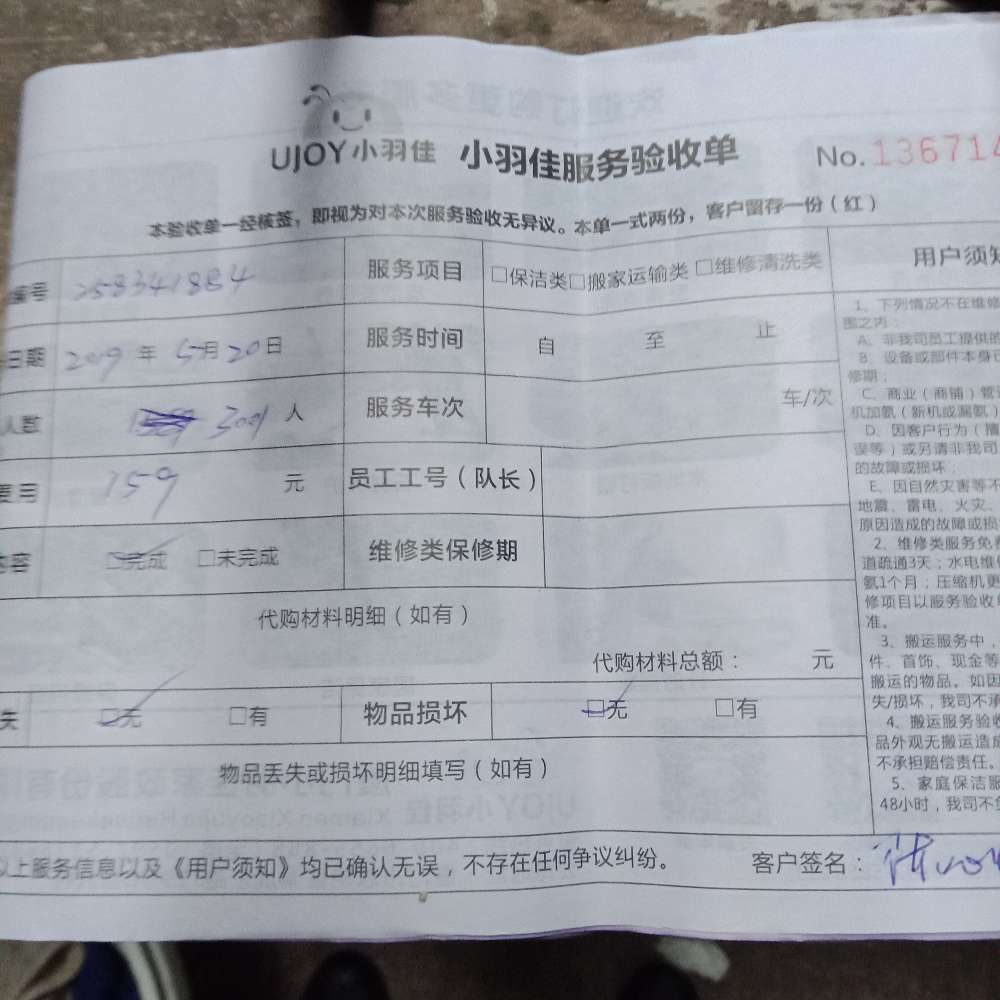 UJOY小羽佳 小羽佳服务验收单 No.136714
本验收单一经核签，即视为对本次服务验收无异议。本单一式两份，客户留存一份（红）
编号 258341884 服务项目 □保洁类□搬家运输类□维修清洗类
日期 2019年5月20日 服务时间 自 至 止
人数 3001 人 服务车次 车/次
费用 159 元 员工工号（队长）
内容 □完成 □未完成 维修类保修期
代购材料明细（如有）
代购材料总额： 元
失 □无 □有 物品损坏 □无 □有
物品丢失或损坏明细填写（如有）
以上服务信息以及《用户须知》均已确认无误，不存在任何争议纠纷。 客户签名：
用户须知
1、下列情况不在维修
围之内：
A、非我司员工提供的
B、设备或部件本身已
修期；
C、商业（商铺）管
机加氨（新机或漏氨）
D、因客户行为（擅
误等）或另请非我司
的故障或损坏；
E、因自然灾害等不
地震、雷电、火灾、
原因造成的故障或损
2、维修类服务免费
道疏通3天；水电维
氨1个月；压缩机更
修项目以服务验收单
准。
3、搬运服务中，
件、首饰、现金等
搬运的物品。如因
失/损坏，我司不承
4、搬运服务验收
品外观无搬运造成
不承担赔偿责任。
5、家庭保洁服
48小时，我司不负